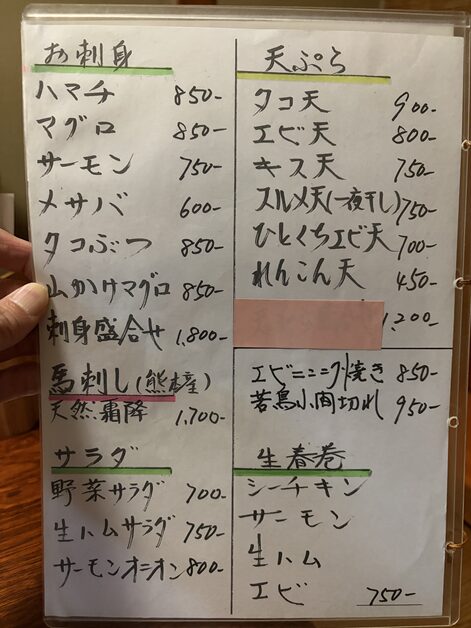 お刺身
ハマチ 850-
マグロ 850-
サーモン 750-
メサバ 600-
タコぶつ 850-
山かけマグロ 850-
刺身盛合せ 1,800-
馬刺し(熊本産)
天然霜降 1,700-
サラダ
野菜サラダ 700-
生ハムサラダ 750-
サーモンオニオン 800-
天ぷら
タコ天 900-
エビ天 800-
キス天 750-
スルメ天(一夜干し) 750-
ひとくちエビ天 700-
れんこん天 450-
1,200-
エビニンニク焼き 850-
若鳥小肉切れ 950-
生春巻
シーチキン
サーモン
生ハム
エビ 750-